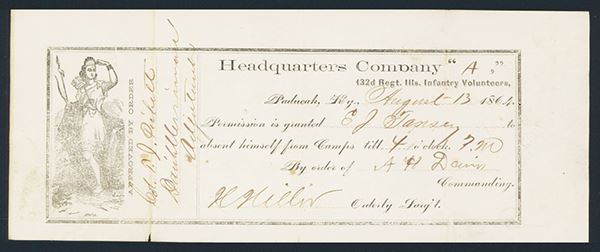 Headquarters Company "A,"
132d Regt. Ills. Infantry Volunteers,
Paducah, Ky., August 13 1864.
Permission is granted E J Tansey to
absent himself from Camps till 4 o'clock P.M
By order of A H Davis
Commanding.
Orderly Serg't.
APPROVED BY ORDER
Col. T J Pickett
Adjutant